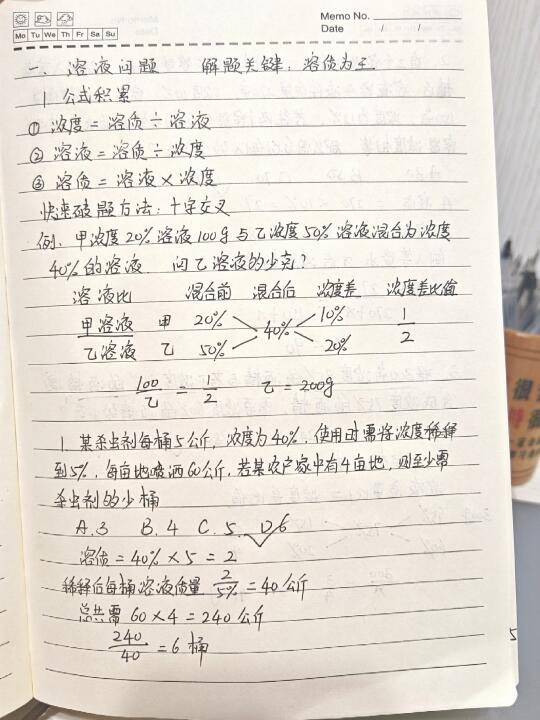 Memo No.
Mo Tu We Th Fr Sa Su
Date / /
一、溶液问题 解题关键：溶质为王
1. 公式积累
① 浓度=溶质÷溶液
② 溶液=溶质÷浓度
③ 溶质=溶液×浓度
快速破题方法：十字交叉
例、甲浓度20%溶液100g与乙浓度50%溶液混合为浓度
40%的溶液 问乙溶液的少克？
溶液比 混合前 混合后 浓度差 浓度差比值
甲溶液 甲 20% 10% 1
40%
乙溶液 乙 50% 20% 2
100/乙 = 1/2 乙=200g
1. 某杀虫剂每桶5公斤，浓度为40%，使用时需将浓度稀释
到5%，每亩地喷洒60公斤，若某农户家中有4亩地，则至少需
杀虫剂的少桶
A.3 B.4 C.5 D.6
溶质=40%×5=2
稀释后每桶溶液质量 2/5% =40公斤
总共需 60×4=240公斤
240/40 =6桶